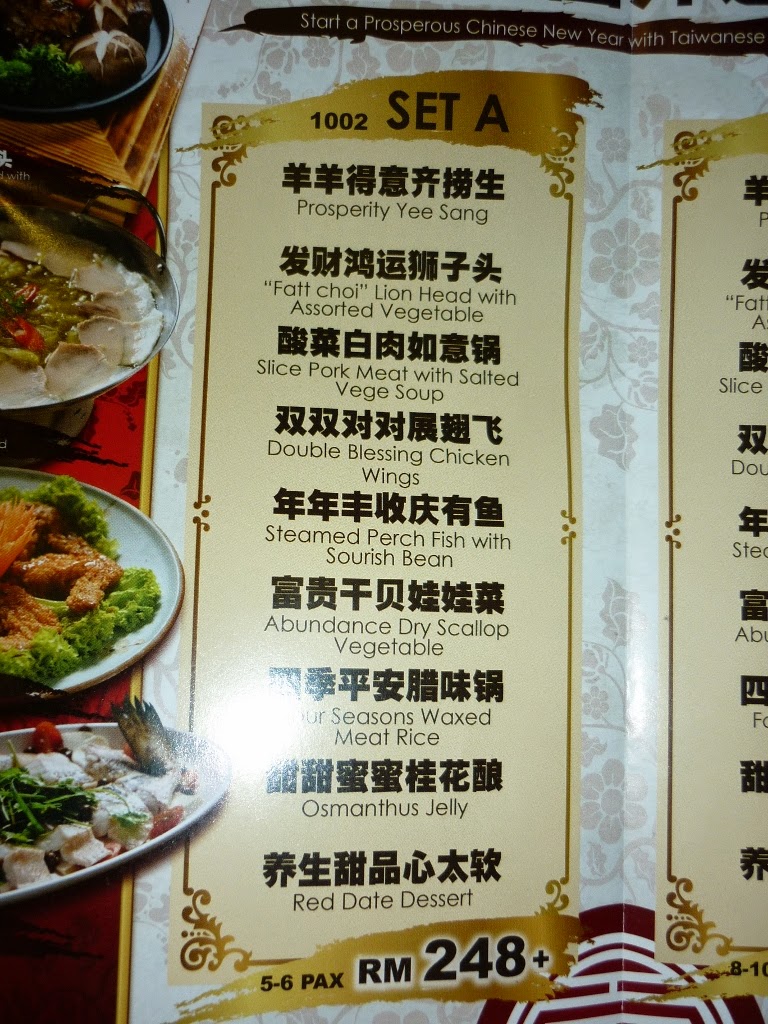 Start a Prosperous Chinese New Year with Taiwanese
1002 SET A
羊羊得意齐捞生
Prosperity Yee Sang
发财鸿运狮子头
“Fatt choi” Lion Head with
Assorted Vegetable
酸菜白肉如意锅
Slice Pork Meat with Salted
Vege Soup
双双对对展翅飞
Double Blessing Chicken
Wings
年年丰收庆有鱼
Steamed Perch Fish with
Sourish Bean
富贵干贝娃娃菜
Abundance Dry Scallop
Vegetable
四季平安腊味锅
Four Seasons Waxed
Meat Rice
甜甜蜜蜜桂花酿
Osmanthus Jelly
养生甜品心太软
Red Date Dessert
5-6 PAX RM 248+
头
with
羊
发
“Fat
酸
Slice
双
Dou
年
Stea
富
Abu
四
Fo
甜
养
8-10